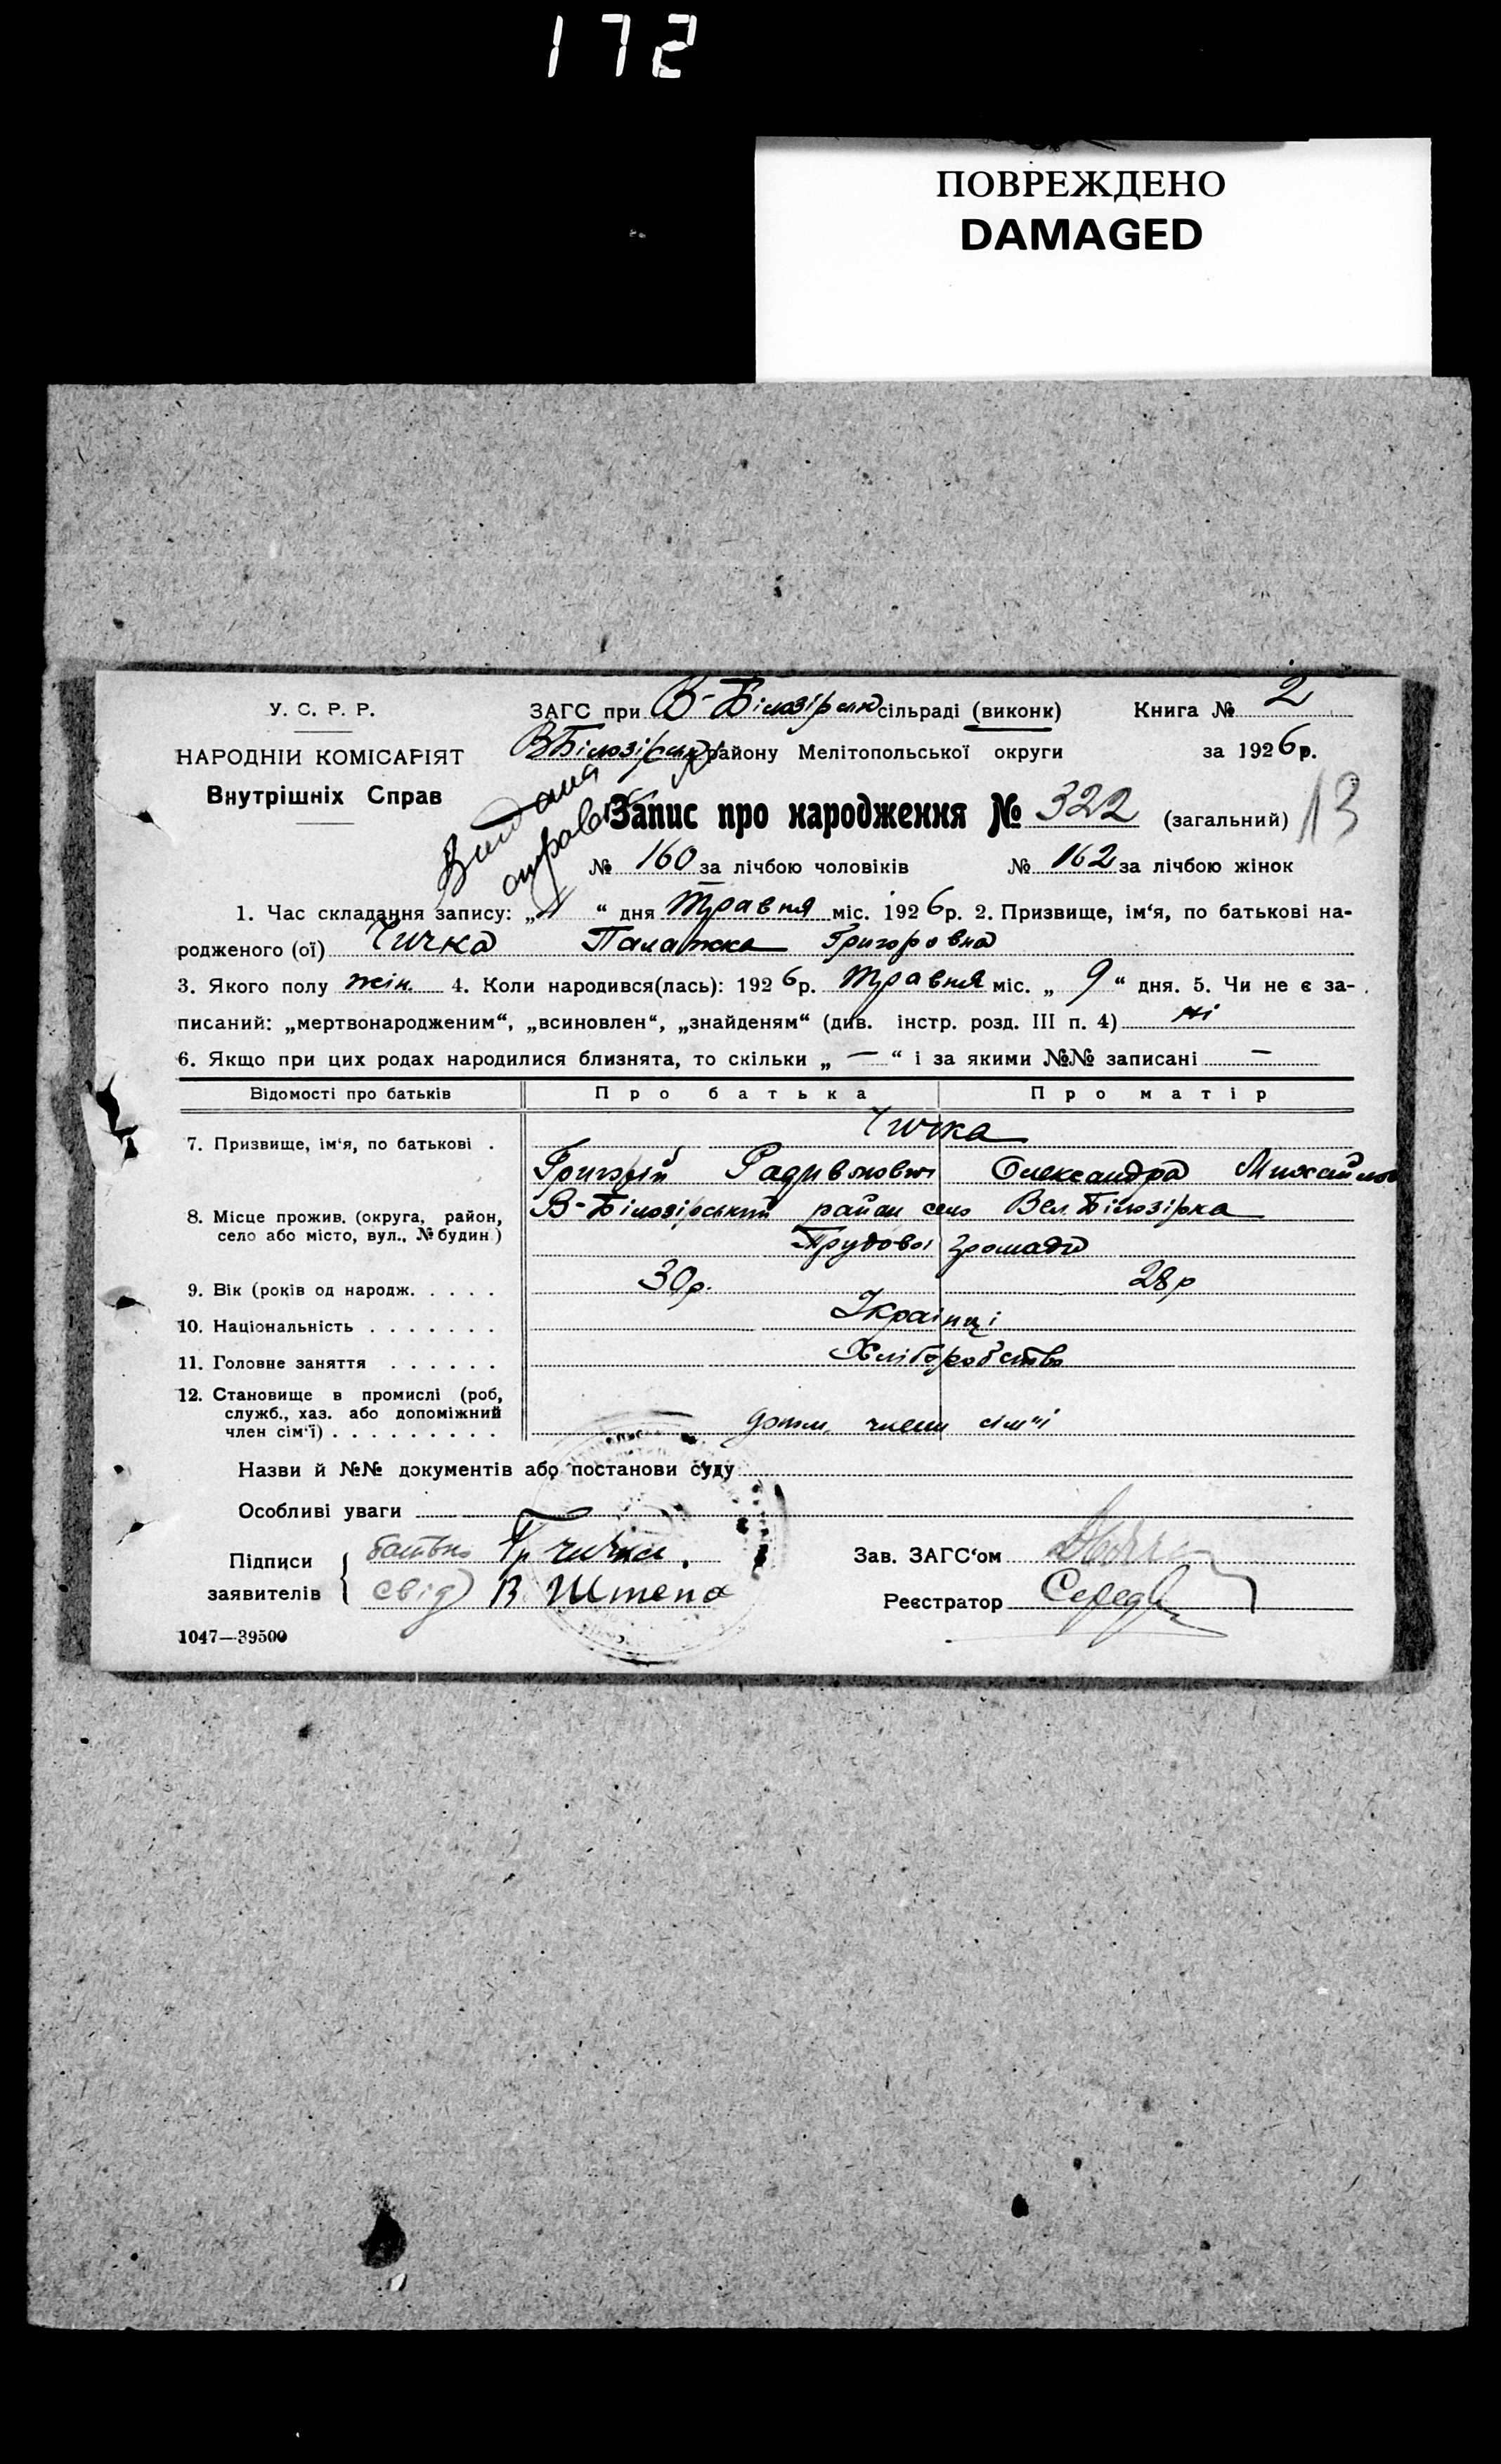 172
ПОВРЕЖДЕНО
DAMAGED
У. С. Р. Р.
НАРОДНІЙ КОМІСАРІЯТ
Внутрішніх Справ
ЗАГС при В-Білозірськ сільраді (виконк)
Книга № 2
ВБілозірськ району Мелітопольської округи
за 1926 р.
Видана
Запис про народження № 322 (загальний)
13
№ 160 за лічбою чоловіків № 162 за лічбою жінок
1. Час складання запису: „ “ дня Травня міс. 1926 р. 2. Призвище, ім'я, по батькові на-
родженого (ої) Чичка Палажка Григоровна
3. Якого полу жін. 4. Коли народився(лась): 1926 р. Травня міс. „ 9 “ дня. 5. Чи не є за-
писаний: „мертвонародженим“, „всиновлен“, „знайденям“ (див. інстр. розд. III п. 4) ні
6. Якщо при цих родах народилися близнята, то скільки „ — “ і за якими №№ записані —
Відомості про батьків Про батька Про матір
7. Призвище, ім'я, по батькові . Чичка
Григорій Радивонович Олександра Михайлов
8. Місце прожив. (округа, район, село або місто, вул., № будин.) В-Білозірський район село Вел. Білозірка
Трудової громади
9. Вік (років од народж. . . . . 30р. 28р
10. Національність . . . . . . . Українці
11. Головне заняття . . . . . . Хліборобство
12. Становище в промислі (роб,
служб., хаз. або допоміжний
член сім'ї) . . . . . . . . . члени сім'ї
Назви й №№ документів або постанови суду
Особливі уваги
Підписи
заявителів
батько Гр Чичка
свід) В. Штепа
Зав. ЗАГС'ом
Реєстратор Середа
1047—39500